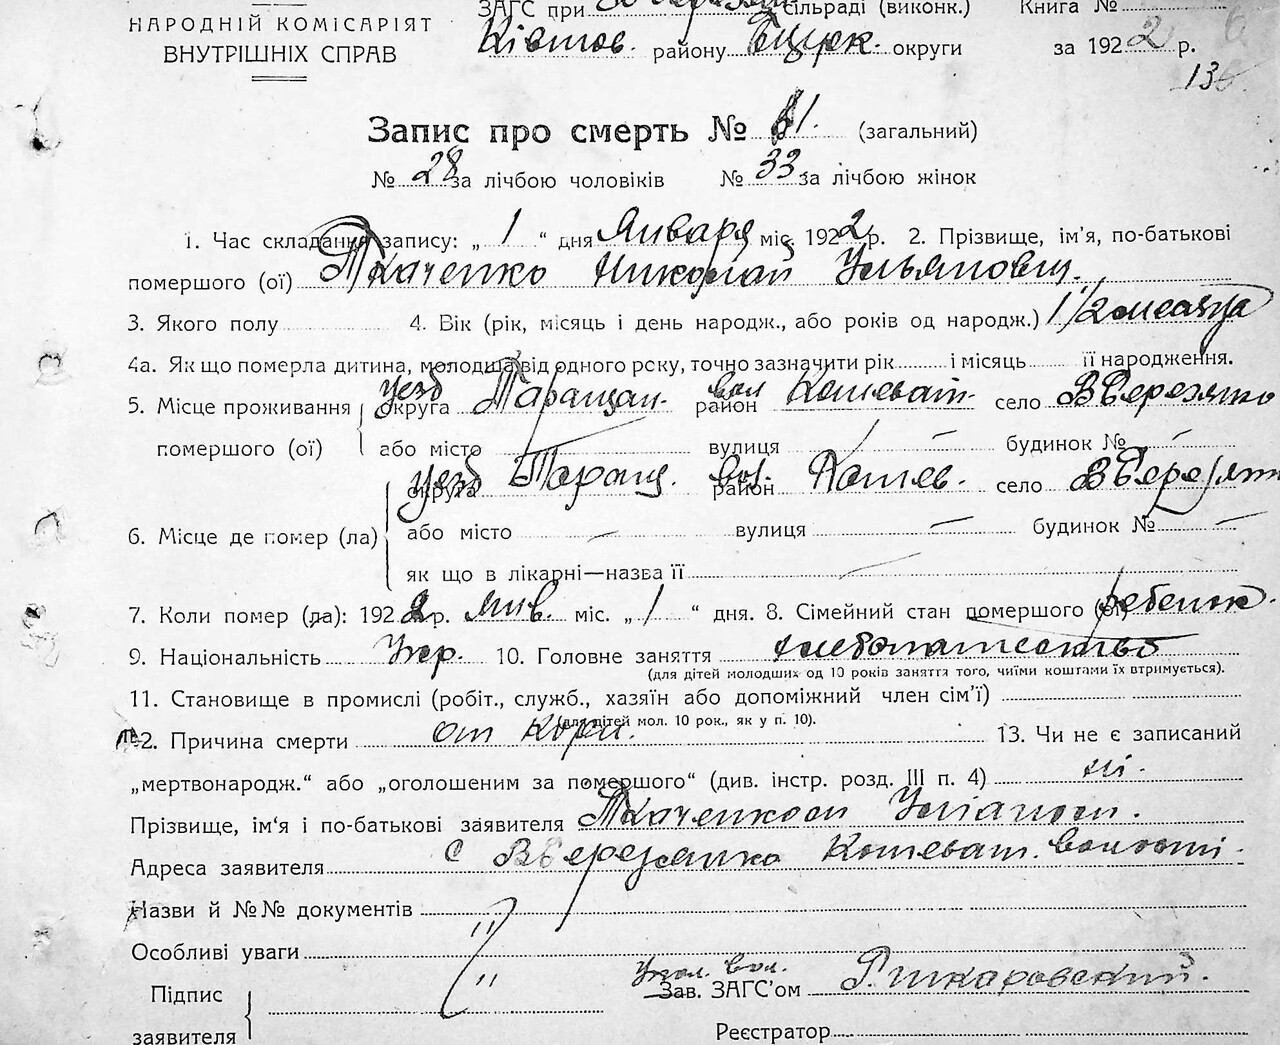 НАРОДНІЙ КОМІСАРІЯТ
ВНУТРІШНІХ СПРАВ
ЗАГС при сільраді (виконк.)
району Бцерк. округи
Книга №
за 1922 р.
13
Запис про смерть № 61. (загальний)
№ 28 за лічбою чоловіків № 33. за лічбою жінок
1. Час складання запису: „ 1 “ дня Января міс. 1922 р. 2. Прізвище, ім’я, по-батькові
помершого (ої) Ткаченко Николай Ульянович.
3. Якого полу 4. Вік (рік, місяць і день народж., або років од народж.) 1 1/2 месяца
4а. Як що померла дитина, молодша від одного року, точно зазначити рік і місяць її народження.
5. Місце проживання помершого (ої) уезд округа Таращан. вол район Кошеват. село ВБерезянко
або місто вулиця – будинок № –
6. Місце де помер (ла) уезд округа Таращ. вол. район Кошев. село
або місто – вулиця – будинок № –
як що в лікарні—назва її
7. Коли помер (ла): 1922 р. янв. міс. „ 1 “ дня. 8. Сімейний стан помершого ребенок.
9. Національність Укр. 10. Головне заняття хлебопашество
(для дітей молодших од 10 років заняття того, чиїми коштами їх втримується).
11. Становище в промислі (робіт., служб., хазяїн або допоміжний член сім’ї)
(для дітей мол. 10 рок., як у п. 10).
12. Причина смерти от кори. 13. Чи не є записаний
„мертвонародж.“ або „оголошеним за помершого“ (див. інстр. розд. III п. 4) ні.
Прізвище, ім‘я і по-батькові заявителя
Адреса заявителя с ВБерезянко Кошеват. волости.
Назви й №№ документів "
Особливі уваги "
Підпис заявителя
вол. Зав. ЗАГС’ом
Реєстратор